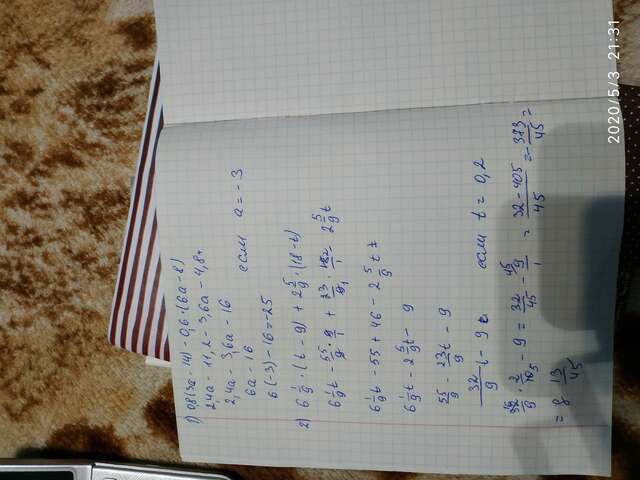 1) 0,8(3a - 14) - 0,6·(6a - 8)
2,4a - 11,2 - 3,6a - 4,8
2,4a - 3,6a - 16
6a - 16 если a = -3
6(-3) - 16 = -25
2) 6 1/9 · (t - 9) + 2 5/9 · (18 - t)
6 1/9 t - 55/9 · 9/1 + 23/9 · 18/1 - 2 5/9 t
6 1/9 t - 55 + 46 - 2 5/9 t
6 1/9 t - 2 5/9 t - 9
55/9 - 23/9 t - 9
32/9 t - 9 если t = 0,2
32/9 · 2/10 - 9 = 32/45 - 9/1 = 32-405/45 = -373/45 =
= 8 13/45
2020/5/3 21:31